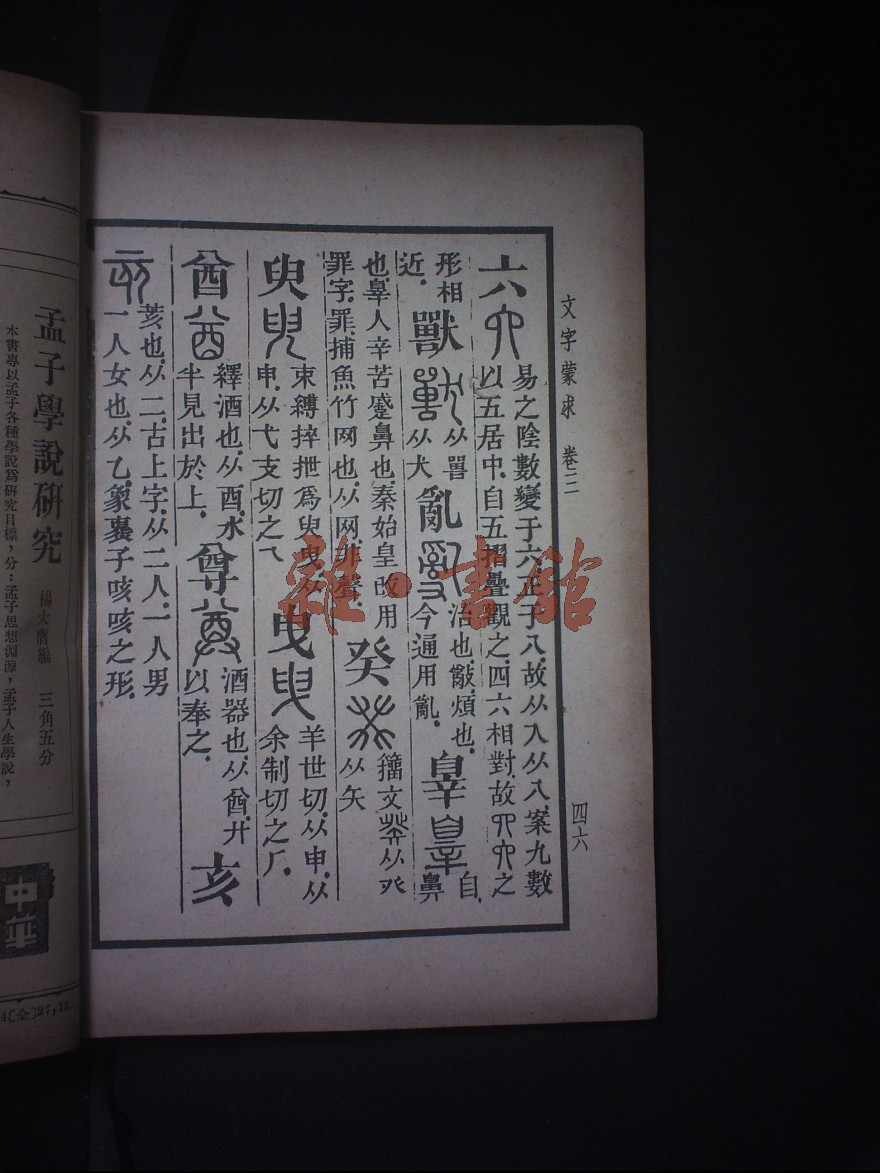 文字蒙求 卷三
四六
六 易之陰數變于六正于八故从入从八案九數
以五居中自五摺疊觀之四六相對故
之
形相
近
獸 从嘼
从犬
亂 治也敽煩也
今通用亂
辠 自
鼻
也辠人辛苦蹙鼻也秦始皇改用
罪字罪捕魚竹网也从网非聲
癸 籀文 从癶
从矢
臾 束縛捽抴爲臾曳从
申从乀弋支切之乀
曳 羊世切从申从
余制切之厂
酋 繹酒也从酉水
半見出於上
尊 酒器也从酋廾
以奉之
亥
荄也从二古上字从二人一人男
一人女也从乙象褢子咳咳之形
孟子學說研究 楊大膺編 三角五分
本書專以孟子各種學說爲研究目標，分：孟子思想淵源，孟子人生學說，
中華
27,12.
雜·書館